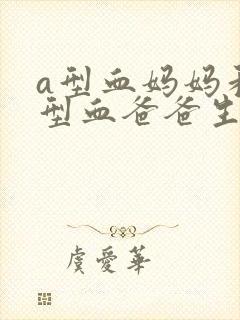 a型血妈妈
型血爸爸生
虞爱華